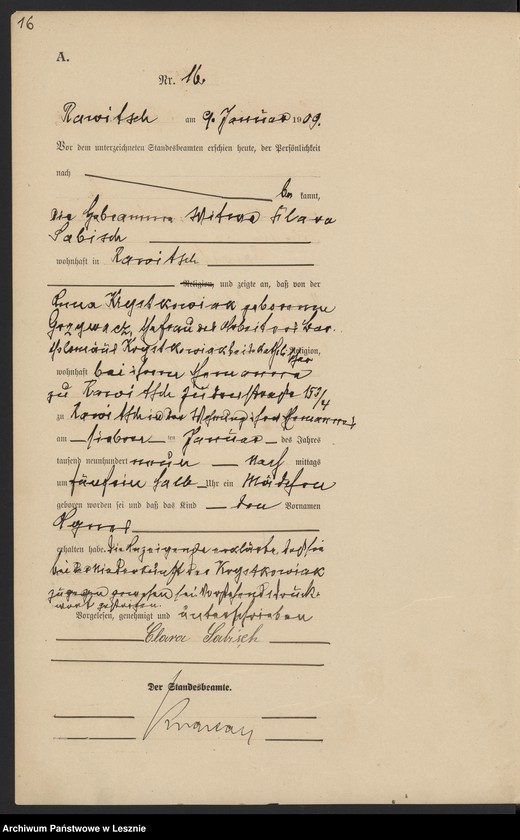 16
A.
Nr. 16.
Rawitsch am 9. Januar 1909.
Vor dem unterzeichneten Standesbeamten erschien heute, der Persönlichkeit
nach
be kannt,
die Hebamme Witwe Clara
Sabisch
wohnhaft in Rawitsch
Religion, und zeigte an, daß von der
Anna Krystkowiak geborenen
Grzywacz, Ehefrau des Arbeiters Bar-
tholomäus Krystkowiak beide kathol. Religion,
wohnhaft bei ihrem Ehemanne
zu Rawitsch 153/4
zu Rawitsch in der Wohnung ihres Ehemannes
am sieben ten Januar des Jahres
tausend neunhundert neun Nach mittags
um fünfeinhalb Uhr ein Mädchen
geboren worden sei und daß das Kind den Vornamen
Agnes
erhalten habe. Die Anzeigende erklärte, daß sie
bei der Niederkunft der Krystkowiak
zugegen gewesen sei. Vorstehend Druck-
wort gestrichen.
Vorgelesen, genehmigt und unterschrieben
Clara Sabisch
Der Standesbeamte.
Archiwum Państwowe w Lesznie